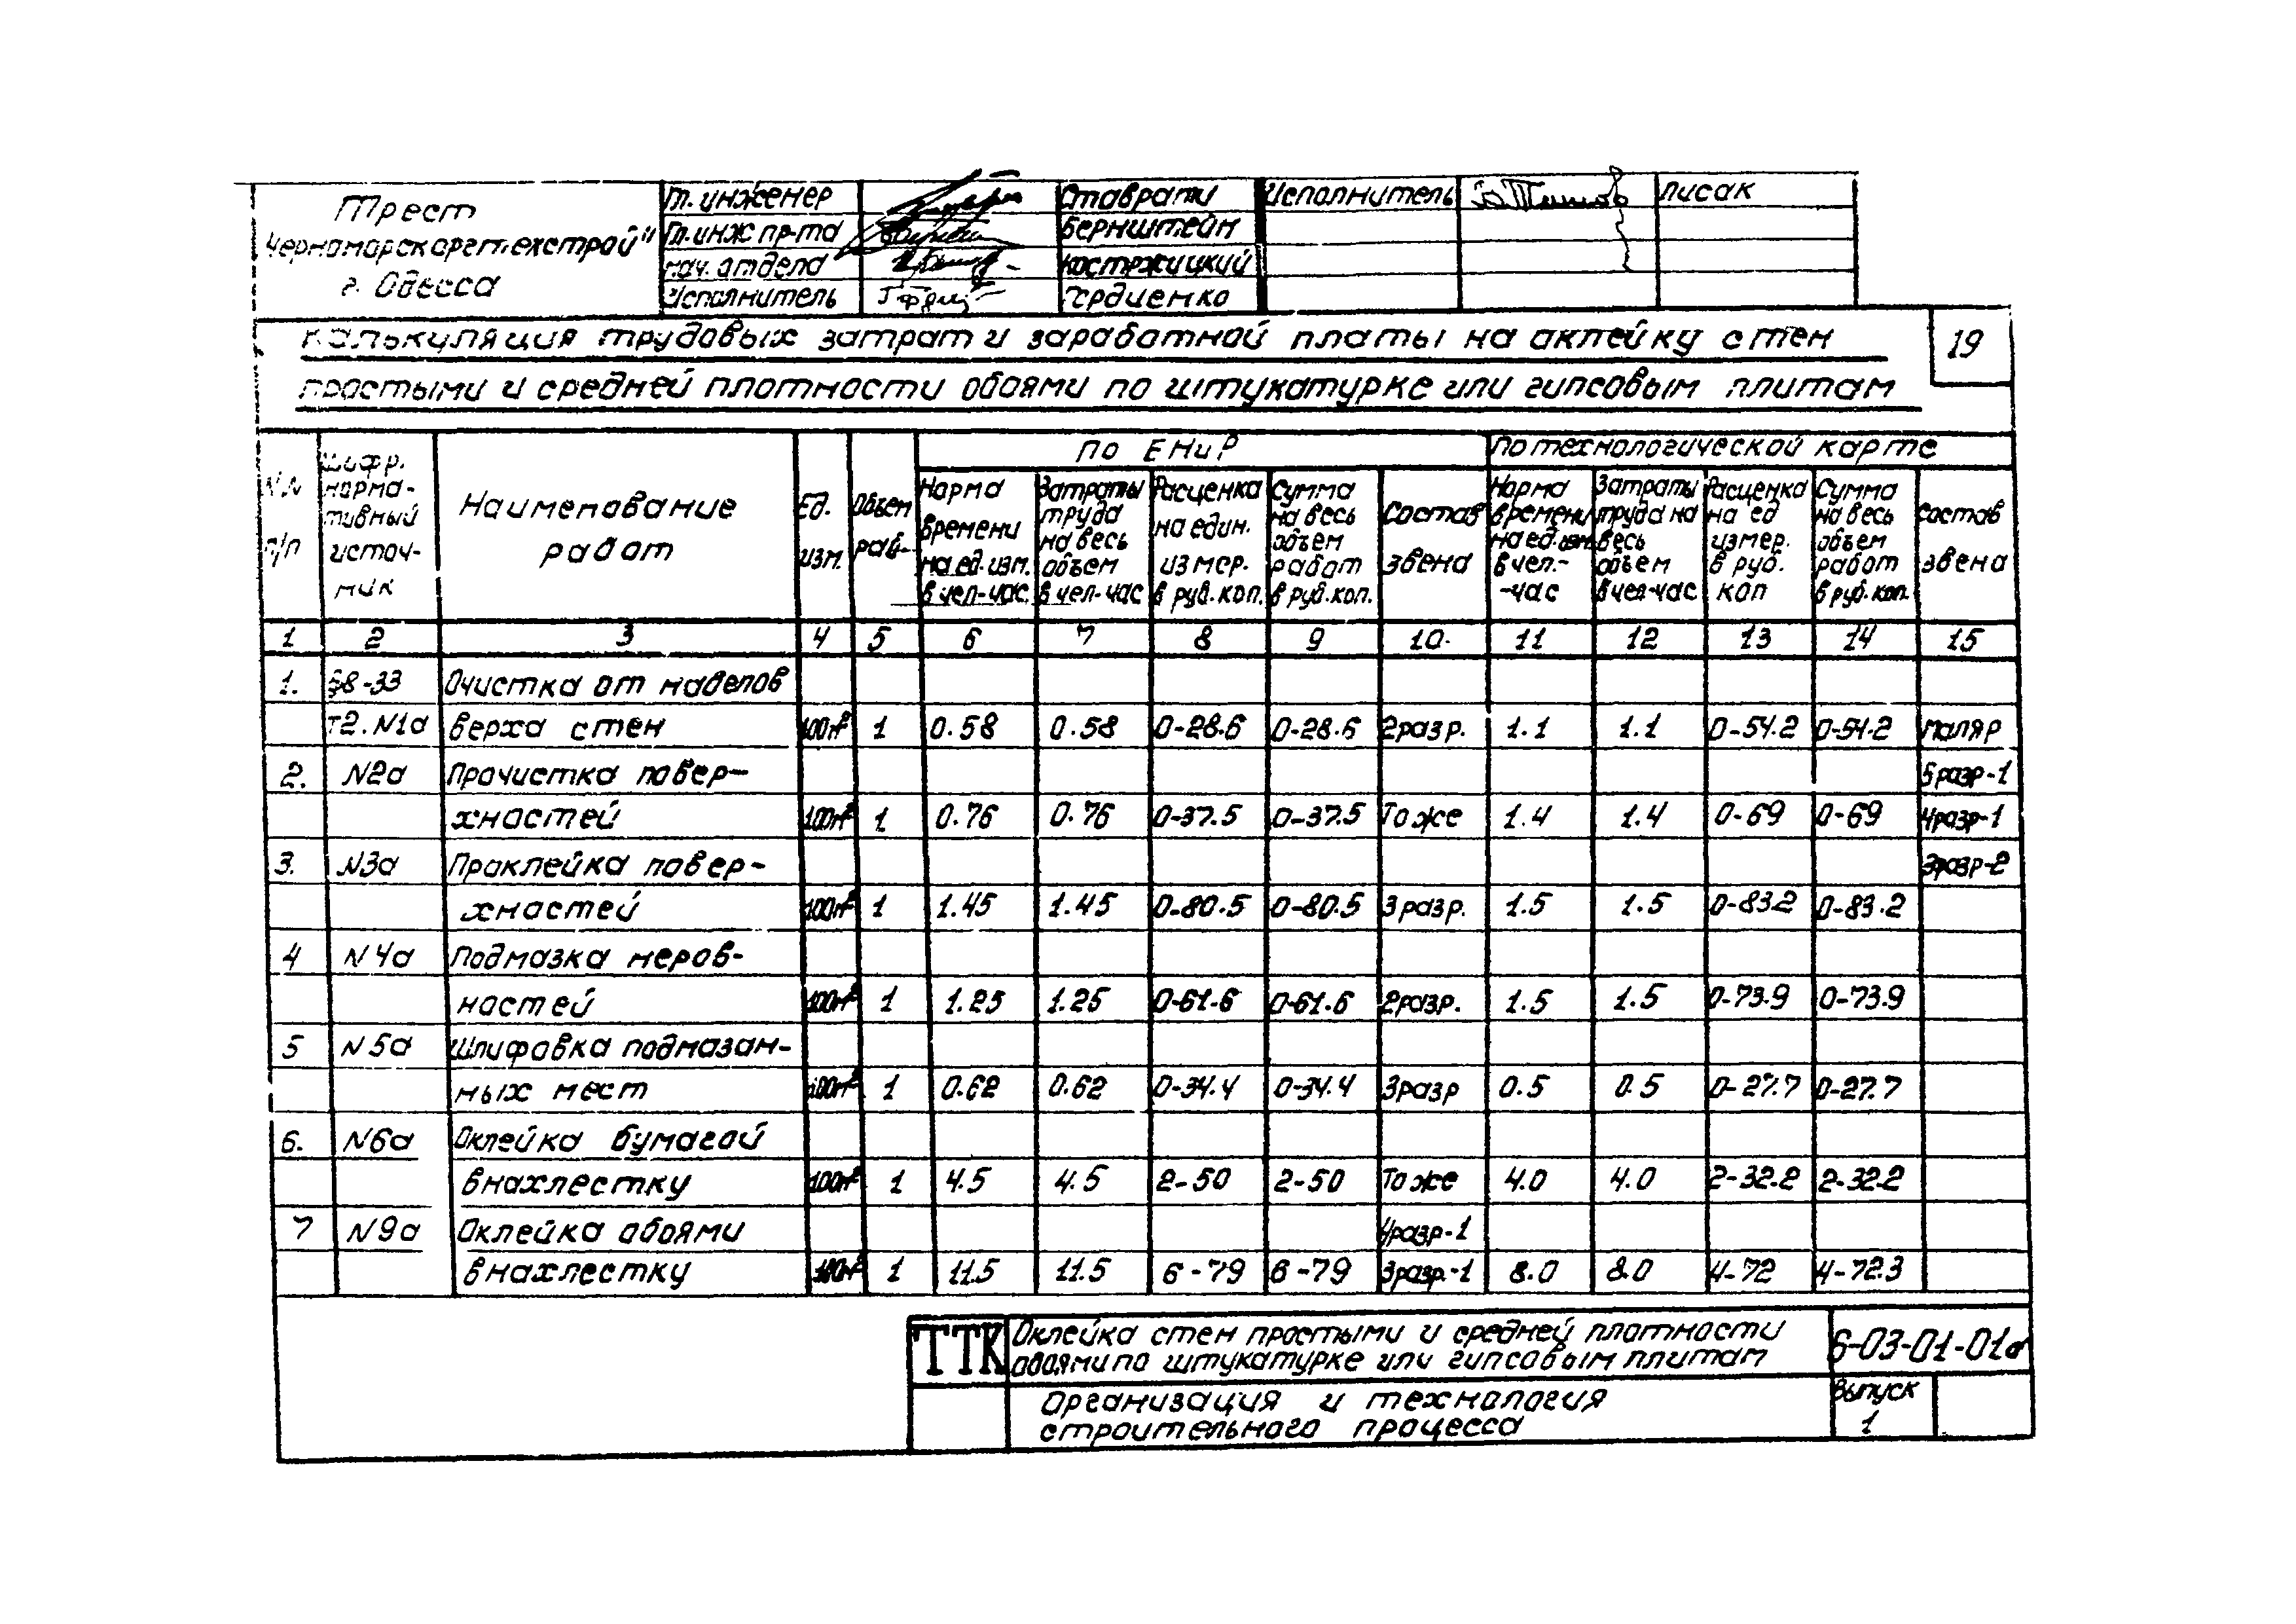 Трест
Черноморскоргтехстрой"
г. Одесса
Гл. инженер Ставрати Исполнитель Лисак
Гл. инж пр-та Бернштейн
Нач. отдела Костржицкий
Исполнитель Гордиенко
Калькуляция трудовых затрат и заработной платы на оклейку стен 19
простыми и средней плотности обоями по штукатурке или гипсовым плитам
N.N п/п
Шифр. норма-
тивный
источ-
ник
Наименование
работ
Ед.
изм.
Объем
раб-
По ЕНиР
Норма
времени
на ед. изм.
в чел-час.
Затраты
труда
на весь
объем
в чел-час
Расценка
на един.
измер.
в руб. коп.
Сумма
на весь
объем
работ
в руб. коп.
Состав
звена
По технологической карте
Норма
времени
на ед. изм.
в чел.-
-час
Затраты
труда на
весь
объем
в чел-час
Расценка
на ед
измер.
в руб.
коп
Сумма
на весь
объем
работ
в руб. коп.
Состав
звена
1 2 3 4 5 6 7 8 9 10. 11 12 13 14 15
1. §8-33 Очистка от набелов
т2. N1а верха стен 100м² 1 0.58 0.58 0-28.6 0-28.6 2разр. 1.1 1.1 0-54.2 0-54.2 маляр
2. N2а Прочистка повер- 5разр-1
хностей 100м² 1 0.76 0.76 0-37.5 0-37.5 То же 1.4 1.4 0-69 0-69 4разр-1
3. N3а Проклейка повер- 3разр-2
хностей 100м² 1 1.45 1.45 0-80.5 0-80.5 3разр. 1.5 1.5 0-83.2 0-83.2
4 N4а Подмазка неров-
ностей 100м² 1 1.25 1.25 0-61.6 0-61.6 2разр. 1.5 1.5 0-73.9 0-73.9
5 N5а Шлифовка подмазан-
ных мест 100м² 1 0.62 0.62 0-34.4 0-34.4 3разр 0.5 0.5 0-27.7 0-27.7
6. N6а Оклейка бумагой
внахлестку 100м² 1 4.5 4.5 2-50 2-50 То же 4.0 4.0 2-32.2 2-32.2
7 N9а Оклейка обоями 4разр-1
внахлестку 100м² 1 11.5 11.5 6-79 6-79 3разр.-1 8.0 8.0 4-72 4-72.3
ТТК Оклейка стен простыми и средней плотности 6-03-01-01а
обоями по штукатурке или гипсовым плитам
Организация и технология Выпуск
строительного процесса 1